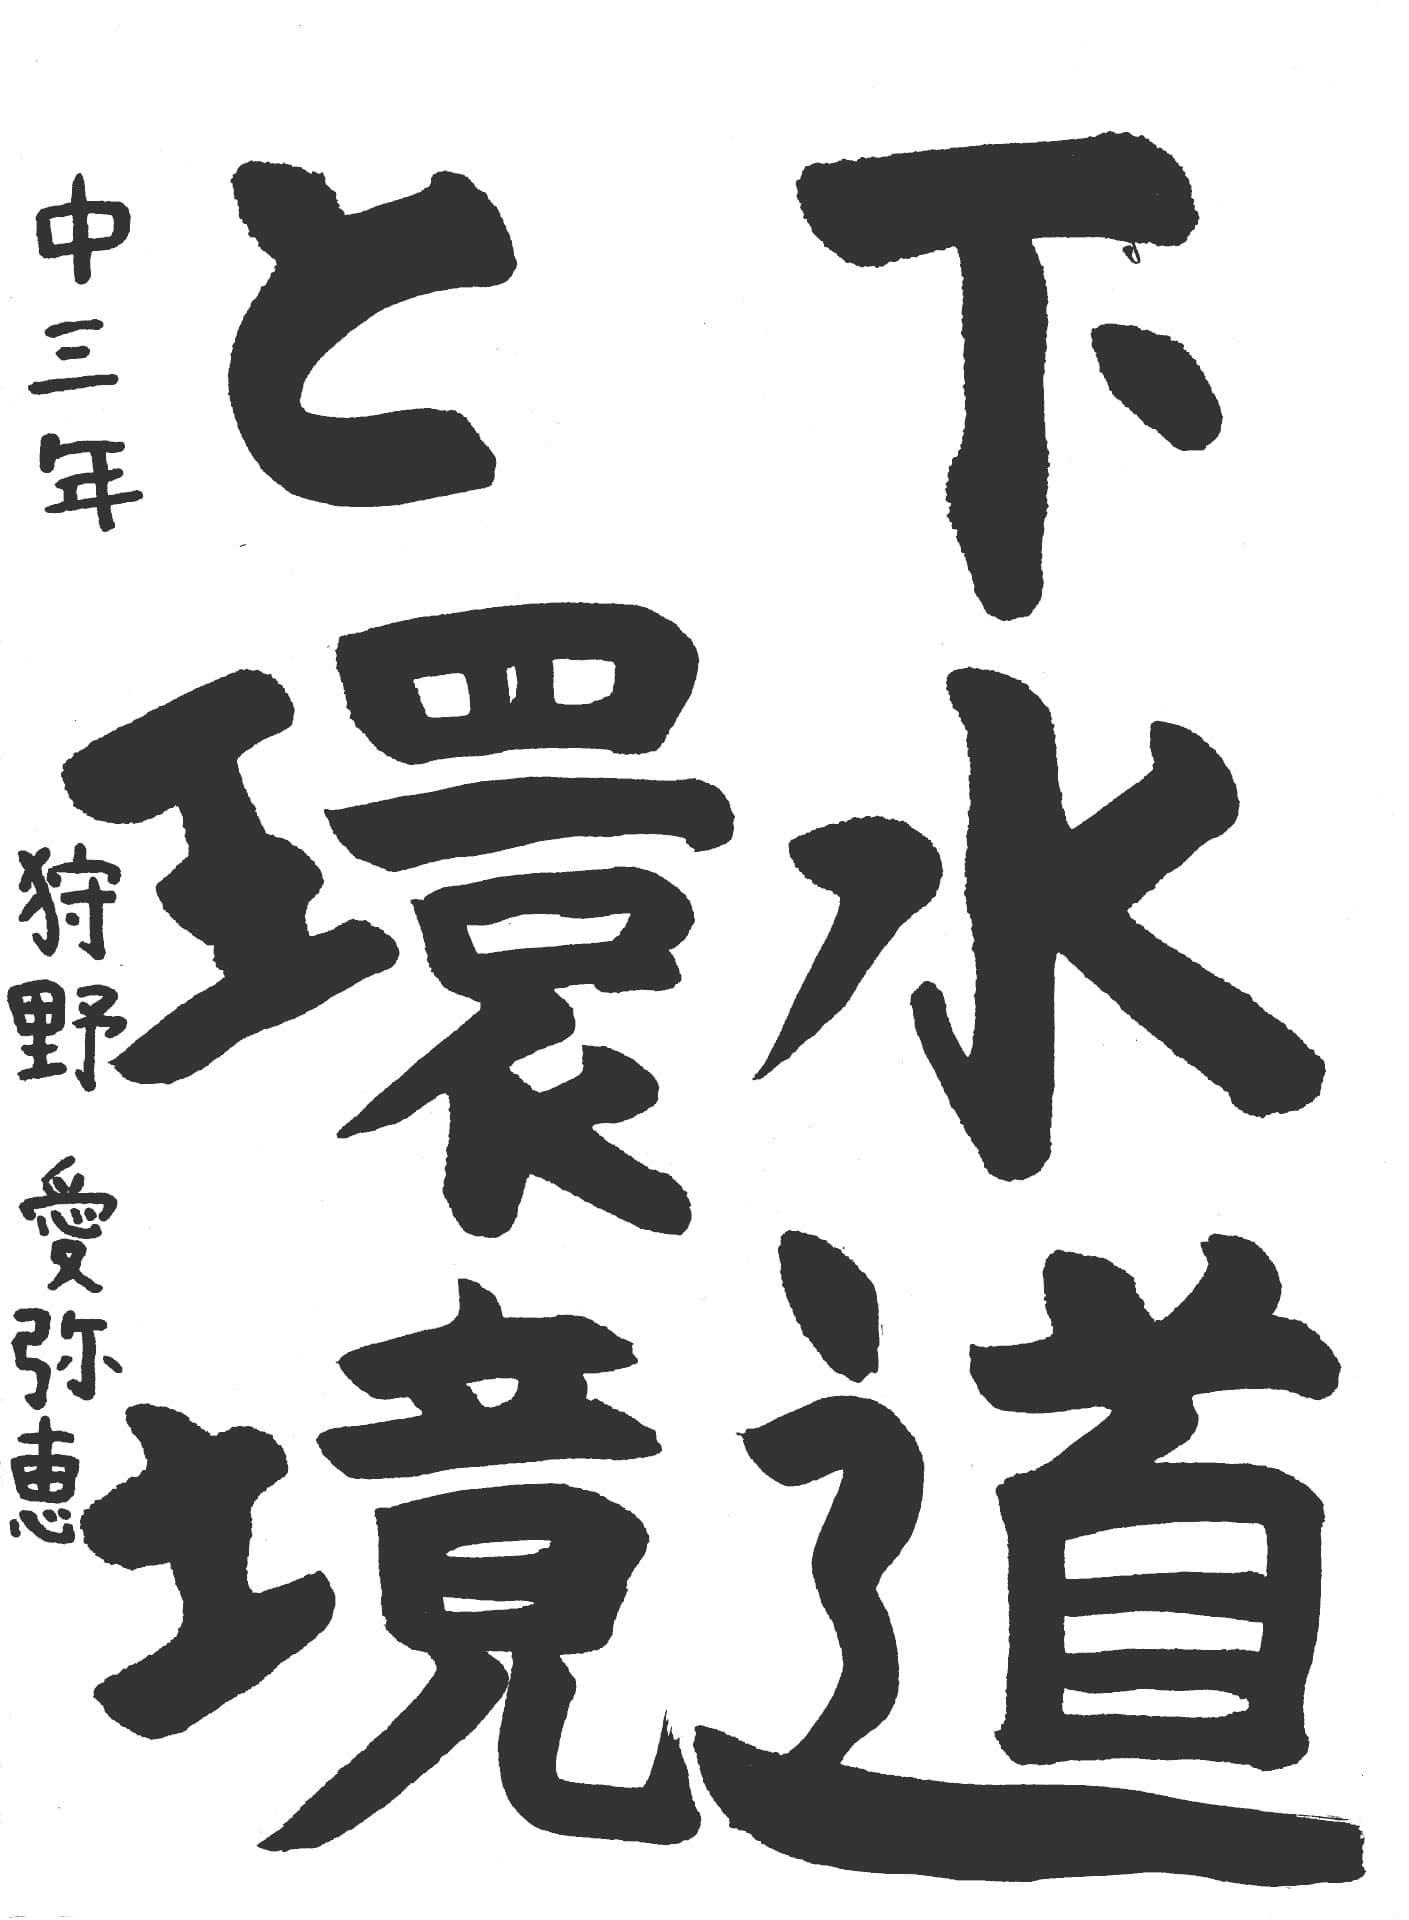 下水道
と環境
中三年 狩野 愛弥恵